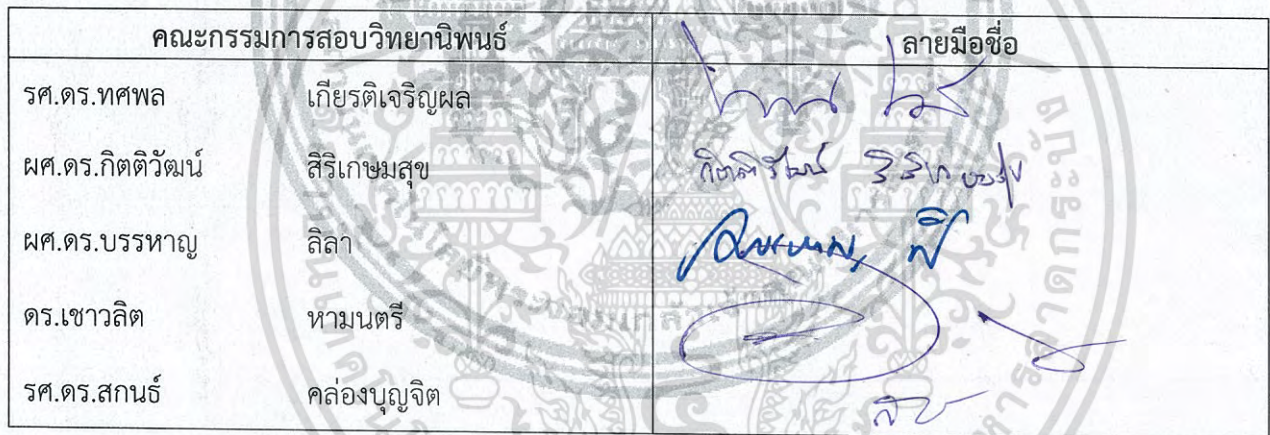 คณะกรรมการสอบวิทยานิพนธ์ ลายมือชื่อ
รศ.ดร.ทศพล เกียรติเจริญผล
ผศ.ดร.กิตติวัฒน์ สิริเกษมสุข กิตติวัฒน์ สิริเกษมสุข
ผศ.ดร.บรรหาญ ลิลา
ดร.เชาวลิต หามนตรี
รศ.ดร.สกนธ์ คล่องบุญจิต